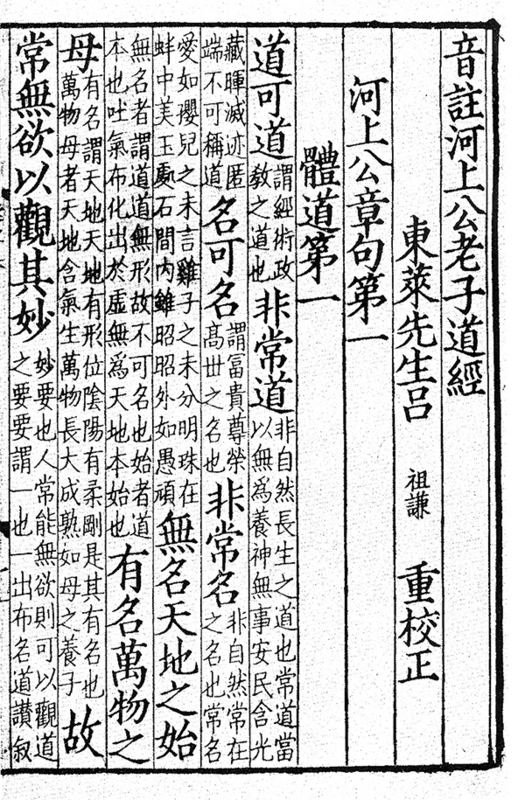 音註河上公老子道經
東萊先生呂 祖謙 重校正
河上公章句第一
體道第一
道可道謂經術政教之道也非常道非自然長生之道也常道當以無爲養神無事安民含光
藏暉滅迹匿端不可稱道名可名謂富貴尊榮高世之名也非常名非自然常在之名也常名
愛如孾兒之未言雞子之未分明珠在蚌中美玉處石間內雖昭昭外如愚頑無名天地之始
無名者謂道道無形故不可名也始者道本也吐氣布化出於虛無爲天地本始也有名萬物之
母有名謂天地天地有形位陰陽有柔剛是其有名也萬物母者天地含氣生萬物長大成熟如母之養子故
常無欲以觀其妙妙要也人常能無欲則可以觀道之要要謂一也一出布名道讚叙